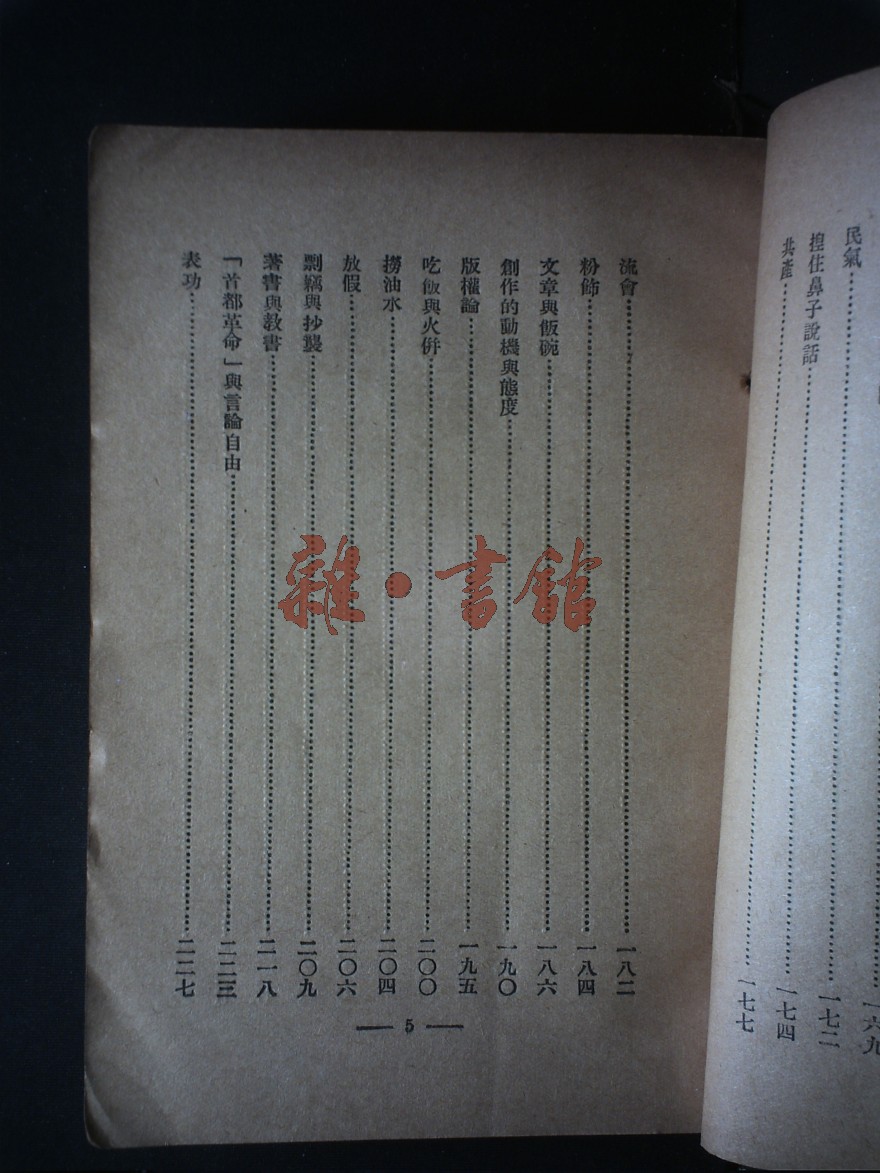 一六九
民氣……一七二
揑住鼻子說話……一七四
共產……一七七
流會……一八二
粉飾……一八四
文章與飯碗……一八六
創作的動機與態度……一九〇
版權論……一九五
吃飯與火併……二〇〇
撈油水……二〇四
放假……二〇六
剽竊與抄襲……二〇九
著書與教書……二一八
「首都革命」與言論自由……二二三
表功……二二七
— 5 —
雜·書館